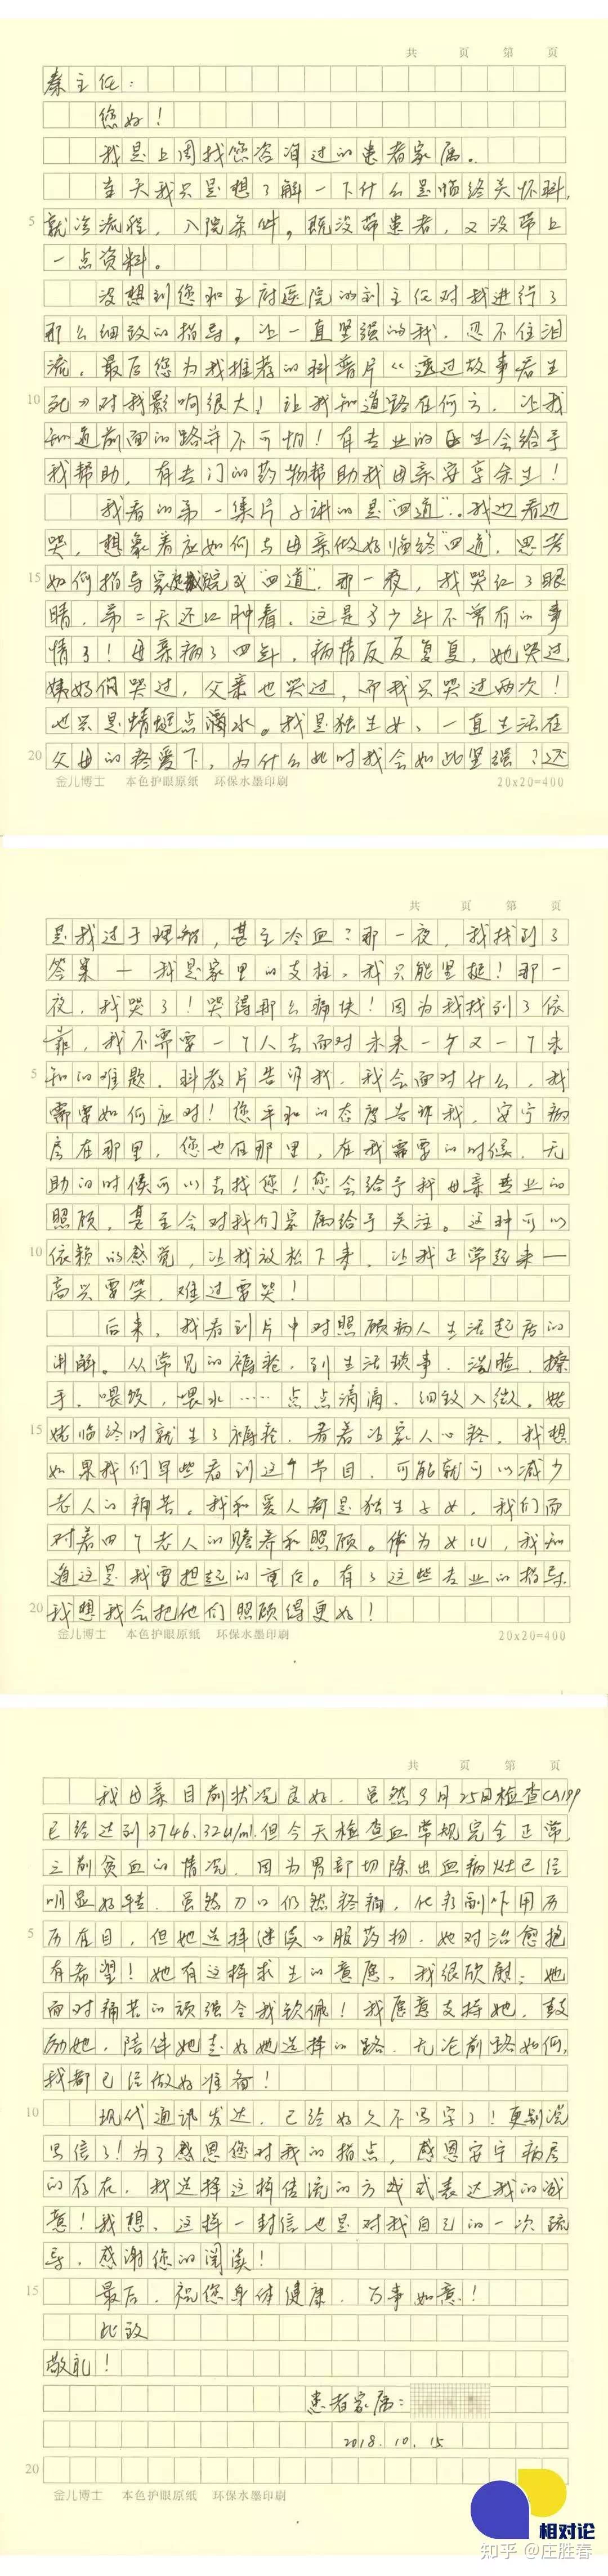 共 页 第 页
秦主任：
您好！
我是上周找您咨询过的患者家属。
本来我只是想了解一下什么是临终关怀科，
5 就诊流程，入院条件，既没带患者，又没带上
一点资料。
没想到您和王府医院的刘主任对我进行了
那么细致的指导。让一直坚强的我，忍不住泪
流。最后您为我推荐的科普片《透过故事看生
10 死》对我影响很大！让我知道路在何方，让我
知道前面的路并不可怕！有专业的医生会给予
我帮助，有专门的药物帮助我母亲安享余生！
我看的第一集片子讲的是“四道”。我边看边
哭，想象着应如何与母亲做好临终“四道”，思考
15 如何指导家庭成员完成“四道”，那一夜，我哭红了眼
睛，第二天还红肿着，这是多少年不曾有的事
情了！母亲病了四年，病情反反复复，她哭过，
姨妈们哭过，父亲也哭过，而我只哭过两次！
也只是蜻蜓点滴水。我是独生女、一直生活在
20 父母的疼爱下，为什么此时我会如此坚强？还
金儿博士 本色护眼原纸 环保水墨印刷 20x20=400
共 页 第 页
是我过于理智，甚至冷血？那一夜，我找到了
答案 — 我是家里的支柱，我只能坚挺！那一
夜，我哭了！哭得那么痛快！因为我找到了依
靠，我不需要一个人去面对未来一个又一个未
5 知的难题。科教片告诉我，我会面对什么，我
需要如何应对！您平和的态度告诉我，安宁病
房在那里，您也在那里，在我需要的时候，无
助的时候可以去找您！您会给予我母亲专业的
照顾，甚至会对我们家属给予关注。这种可以
10 依赖的感觉，让我放松下来，让我正常起来—
高兴要笑，难过要哭！
后来，我看到片中对照顾病人生活起居的
讲解。从常见的褥疮，到生活琐事，洗脸，擦
手，喂饭，喂水……点点滴滴，细致入微。姥
15 姥临终时就生了褥疮，看着让家人心疼，我想
如果我们早些看到这个节目，可能就可以减少
老人的痛苦。我和爱人都是独生子女，我们面
对着四个老人的赡养和照顾。做为女儿，我知
道这是我要担起的重任。有了这些专业的指导
20 我想我会把他们照顾得更好！
金儿博士 本色护眼原纸 环保水墨印刷 20x20=400
共 页 第 页
我母亲目前状况良好，虽然9月25日检查CA199
已经达到3746.32u/ml.但今天检查血常规完全正常，
之前贫血的情况，因为胃部切除出血病灶已经
明显好转。虽然刀口仍然疼痛，化疗副作用历
5 历在目，但她选择继续口服药物，她对治愈抱
有希望！她有这样求生的意愿，我很欣慰；她
面对痛苦的顽强令我钦佩！我愿意支持她，鼓
励她，陪伴她走好她选择的路，无论前路如何，
我都已经做好准备！
10 现代通讯发达，已经好久不写字了！更别说
写信了！为了感恩您对我的指点，感恩安宁病房
的存在，我选择这样传统的方式表达我的诚
意！我想，这样一封信也是对我自己的一次疏
导，感谢您的阅读！
15 最后，祝您身体健康，万事如意！
此致
敬礼！
患者家属：
2018.10.15
20
金儿博士 本色护眼原纸 环保水墨印刷
相对论
知乎 @庄胜春